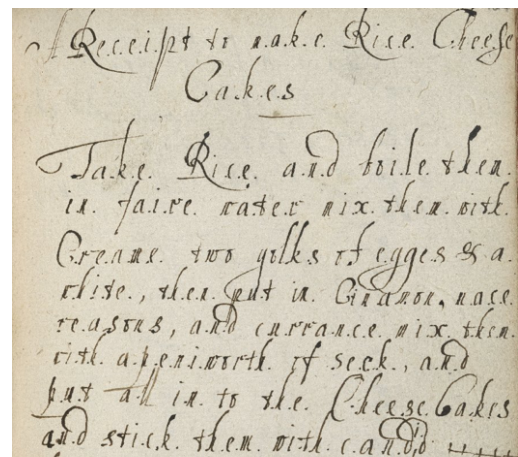 A Receipt to make Rice Cheese
Cakes
Take Rice and boile them
in faire water mix them with
Creame two yolks of egges & a
white, then put in Cinamon, mace
reasons, and currance mix them
with a peniworth of seck, and
put all in to the Cheese Cakes
and stick them with candid